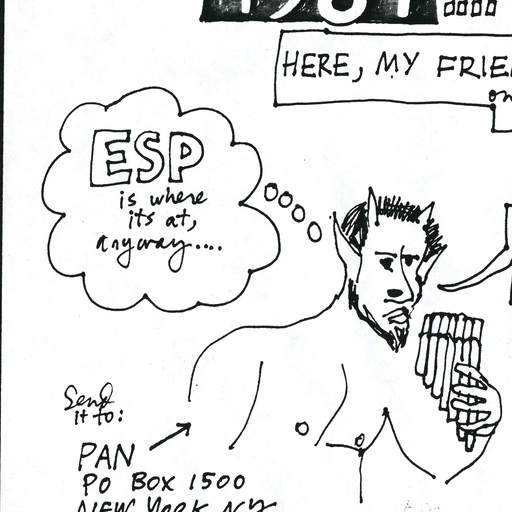 HERE, MY FRIE
on
ESP
is where
its at,
anyway....
Send
it to:
PAN
PO BOX 1500
NEW YORK NY